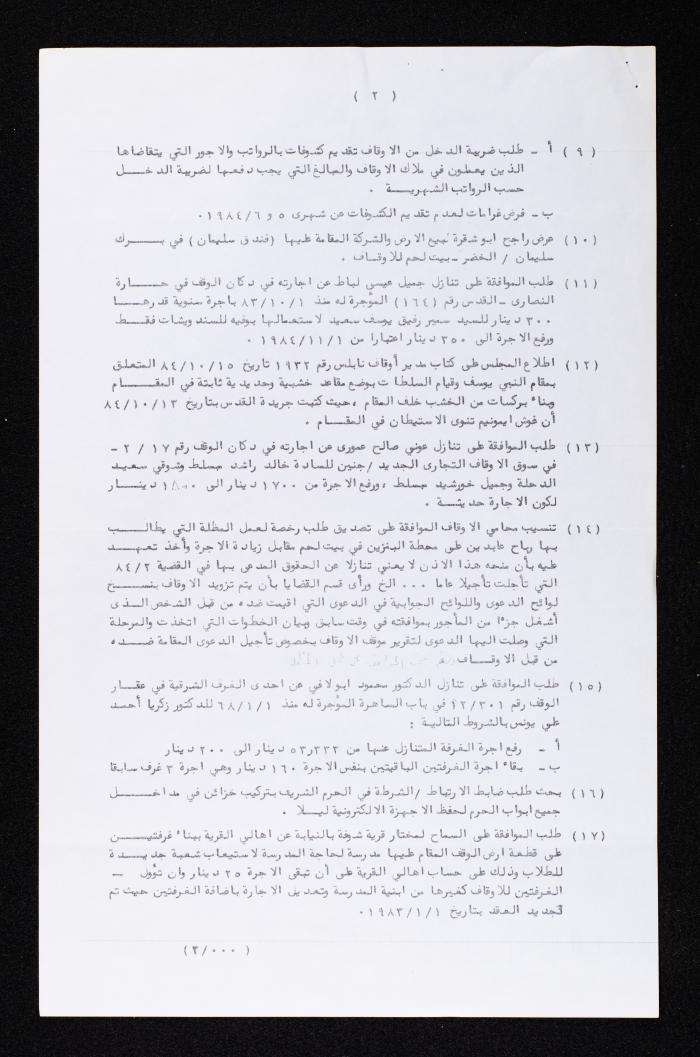 ( ٢ )
( ٩ ) أ - طلب ضريبة الدخل من الاوقاف تقديم كشوفات بالرواتب والاجور التي يتقاضاها
الذين يعملون في ملاك الاوقاف والمبالغ التي يجب دفعها لضريبة الدخــــل
حسب الرواتب الشهريـــة .
ب - فرض غرامات لعدم تقديم الكشوفات عن شهرى ٥ و ١٩٨٤/٦.
(١٠) عرض راجح ابو شقرة لبيع الارض والشركة المقامة عليها (فندق سليمان) في بـــرك
سليمان / الخضر - بيت لحم للاوقاف .
(١١) طلب الموافقة على تنازل جميل عيسى لباط عن اجارته في دكان الوقف في حـــارة
النصارى - القدس رقم (١٦٤) المؤجرة له منذ ٨٣/١٠/١ باجرة سنوية قدرهـــا
٣٠٠ دينار للسيد سمير رفيق يوسف سعيد لاستعمالها بوفيه للسندويشات فقـــط
ورفع الاجرة الى ٣٥٠ دينار اعتبارا من ١٩٨٤/١١/١ .
(١٢) اطلاع المجلس على كتاب مدير أوقاف نابلس رقم ١٩٣٢ تاريخ ٨٤/١٠/١٥ المتعلق
بمقام النبي يوسف وقيام السلطات بوضع مقاعد خشبية وحديدية ثابتة في المقـــام
وبناء بركسات من الخشب خلف المقام ، حيث كتبت جريدة القدس بتاريخ ٨٤/١٠/١٣
أن غوش ايمونيم تنوى الاستيطان في المقـــام .
(١٣) طلب الموافقة على تنازل عوني صالح عمورى عن اجارته في دكان الوقف رقم ١٧ / ٢ -
في سوق الاوقاف التجارى الجديد / جنين للسادة خالد راشد مسلط وشوقي سعيـد
الدحلة وجميل خورشيد مسلط ، ورفع الاجرة من ١٧٠٠ دينار الى ١٨٠٠ دينـــار
لكون الاجارة حديثـــة .
(١٤) تنسيب محامي الاوقاف الموافقة على تصديق طلب رخصة لعمل المظلة التي يطالـــب
بها رباح عابدين على محطة البنزين في بيت لحم مقابل زيادة الاجرة وأخذ تعهـــد
عليه بأن منحه هذا الاذن لا يعني تنازلا عن الحقوق المدعى بها في القضية ٨٤/٢
التي تأجلت تأجيلا عاما ... الخ ورأى قسم القضايا بأن يتم تزويد الاوقاف بنســـخ
لوائح الدعوى واللوائح الجوابية في الدعوى التي اقيمت ضده من قبل الشخص الـــذى
أشغل جزءا من المأجور بموافقته في وقت سابق وبيان الخطوات التي اتخذت والمرحلة
التي وصلت اليها الدعوى لتقرير موقف الاوقاف بخصوص تأجيل الدعوى المقامة ضـــده
من قبل الاوقـــاف
(١٥) طلب الموافقة على تنازل الدكتور محمود ابو لافي عن احدى الغرف الشرقية في عقـــار
الوقف رقم ٤٢/٣٠١ في باب الساهرة المؤجرة له منذ ٦٨/١/١ للدكتور زكريا أحمد
علي يونس بالشروط التالية :
أ - رفع اجرة الغرفة المتنازل عنها من ٥٣ر٣٣٣ دينار الى ٢٠٠ دينار
ب - بقاء اجرة الغرفتين الباقيتين بنفس الاجرة ١٦٠ دينار وهي اجرة ٣ غرف سابقا
(١٦) بحث طلب ضابط الارتباط / الشرطة في الحرم الشريف بتركيب خزائن في مداخـــل
جميع ابواب الحرم لحفظ الاجهزة الالكترونية ليـــلا .
(١٧) طلب الموافقة على السماح لمختار قرية شوفة بالنيابة عن اهالي القرية ببناء غرفتيـــن
على قطعة ارض الوقف المقام عليها مدرسة لحاجة المدرسة لاستيعاب شعبة جديـــدة
للطلاب وذلك على حساب اهالي القرية على أن تبقى الاجرة ٢٥ دينار وان تؤول -
الغرفتين للاوقاف كغيرها من ابنية المدرسة وتعديل الاجارة باضافة الغرفتين حيث تم
تجديد العقد بتاريخ ١٩٨٣/١/١.
( ٣/٠٠٠ )